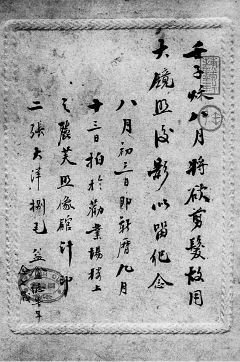 壬子秋八月將欲剪髮故用
大镜照後影以留紀念
八月初三日即新曆九月
十三日拍於勸業場樓上
之麗芙照像館計印
二張大洋捌毛